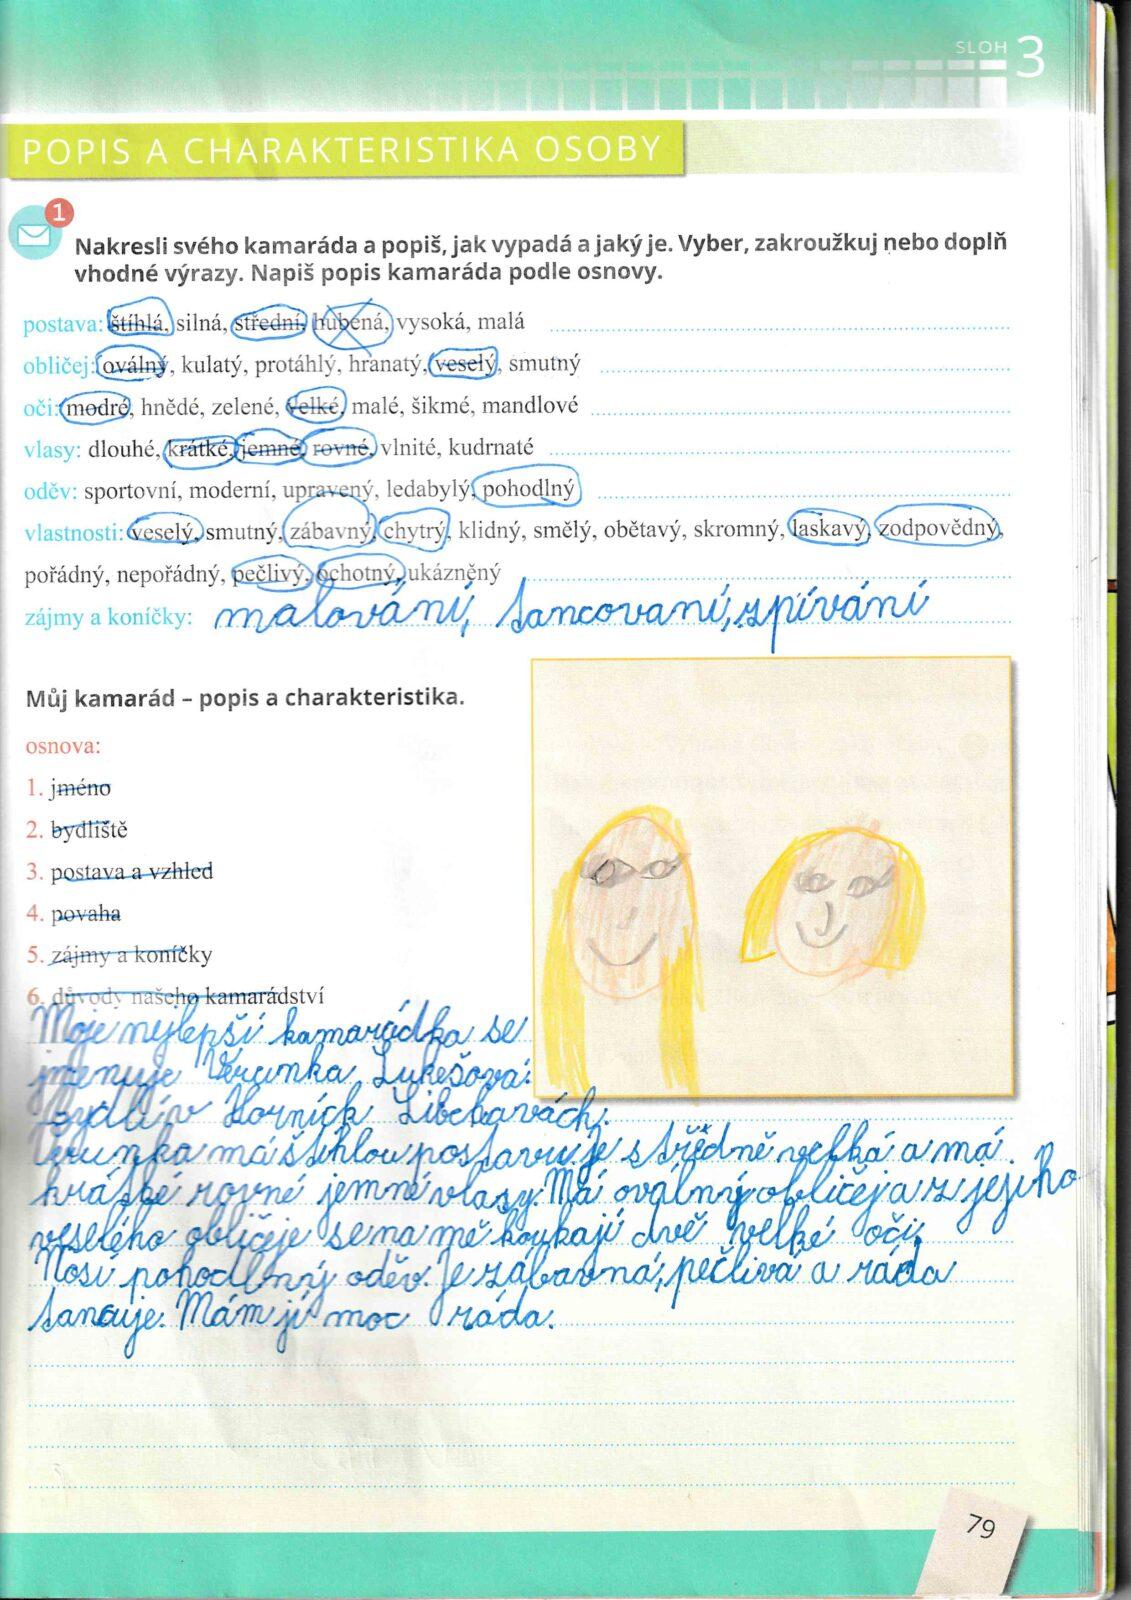 SLOH 3
POPIS A CHARAKTERISTIKA OSOBY
1
Nakresli svého kamaráda a popiš, jak vypadá a jaký je. Vyber, zakroužkuj nebo doplň
vhodné výrazy. Napiš popis kamaráda podle osnovy.
postava: štíhlá, silná, střední, hubená, vysoká, malá
obličej: oválný, kulatý, protáhlý, hranatý, veselý, smutný
oči: modré, hnědé, zelené, velké, malé, šikmé, mandlové
vlasy: dlouhé, krátké, jemné, rovné, vlnité, kudrnaté
oděv: sportovní, moderní, upravený, ledabylý, pohodlný
vlastnosti: veselý, smutný, zábavný, chytrý, klidný, smělý, obětavý, skromný, laskavý, zodpovědný,
pořádný, nepořádný, pečlivý, ochotný, ukázněný
zájmy a koníčky: malování, tancovaní, zpívání
Můj kamarád – popis a charakteristika.
osnova:
1. jméno
2. bydliště
3. postava a vzhled
4. povaha
5. zájmy a koníčky
6. důvody našeho kamarádství
Moje nejlepší kamarádka se
jmenuje Verunka Lukešová.
bydlí v Horních Libchavách.
Verunka má štíhlou postavu je středně velká a má
krátké rovné jemné vlasy. Má oválný obličej a z jejího
veselého obličeje se na mě koukají dvě velké oči.
Nosí pohodlný oděv. Je zábavná, pečlivá a ráda
tancuje. Mám jí moc ráda.
79